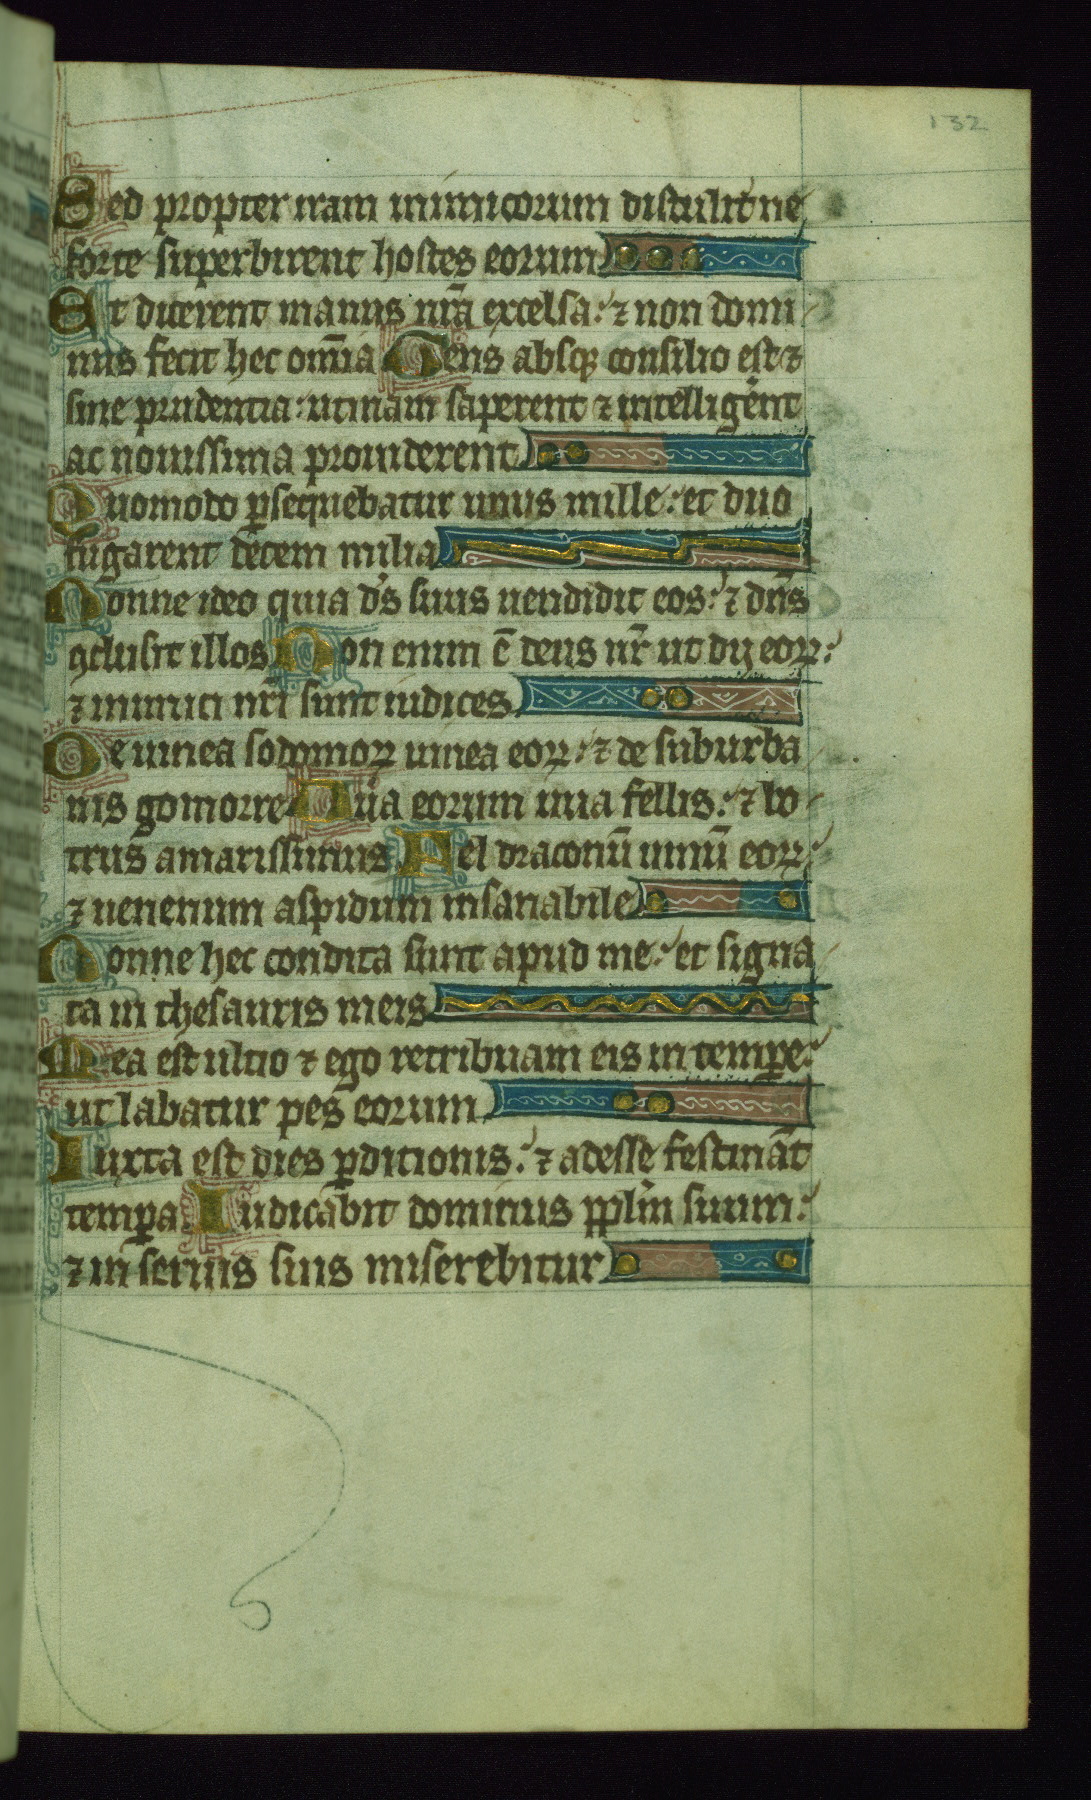 132
Sed propter iram inimicorum distulit ne
forte superbirent hostes eorum
Et dicerent manus nr̄a excelsa: ⁊ non domi
nus fecit hec om̄ia Gens absqꝫ consilio est ⁊
sine prudentia: utinam saperent ⁊ intelligerent
ac nouissima prouiderent
Quomodo ꝑsequebatur unus mille: et duo
fugarent decem milia
Nonne ideo quia ds̄ suus uendidit eos: ⁊ dn̄s
ꝯclusit illos Non enim ē deus nr̄ ut dij eoꝝ:
⁊ inimici nr̄i sunt iudices
De uinea sodomoꝝ uinea eoꝝ: ⁊ de suburba
nis gomorre Uua eorum uua fellis: ⁊ bo
trus amarissimus Fel draconū uinū eoꝝ:
⁊ uenenum aspidum insanabile
Nonne hec condita sunt apud me: et signa
ta in thesauris meis
Mea est ultio ⁊ ego retribuam eis in temꝑe:
ut labatur pes eorum
Iuxta est dies ꝑditionis: ⁊ adesse festināt
temꝑa Iudicabit dominus pplm̄ suum:
⁊ in seruis suis miserebitur